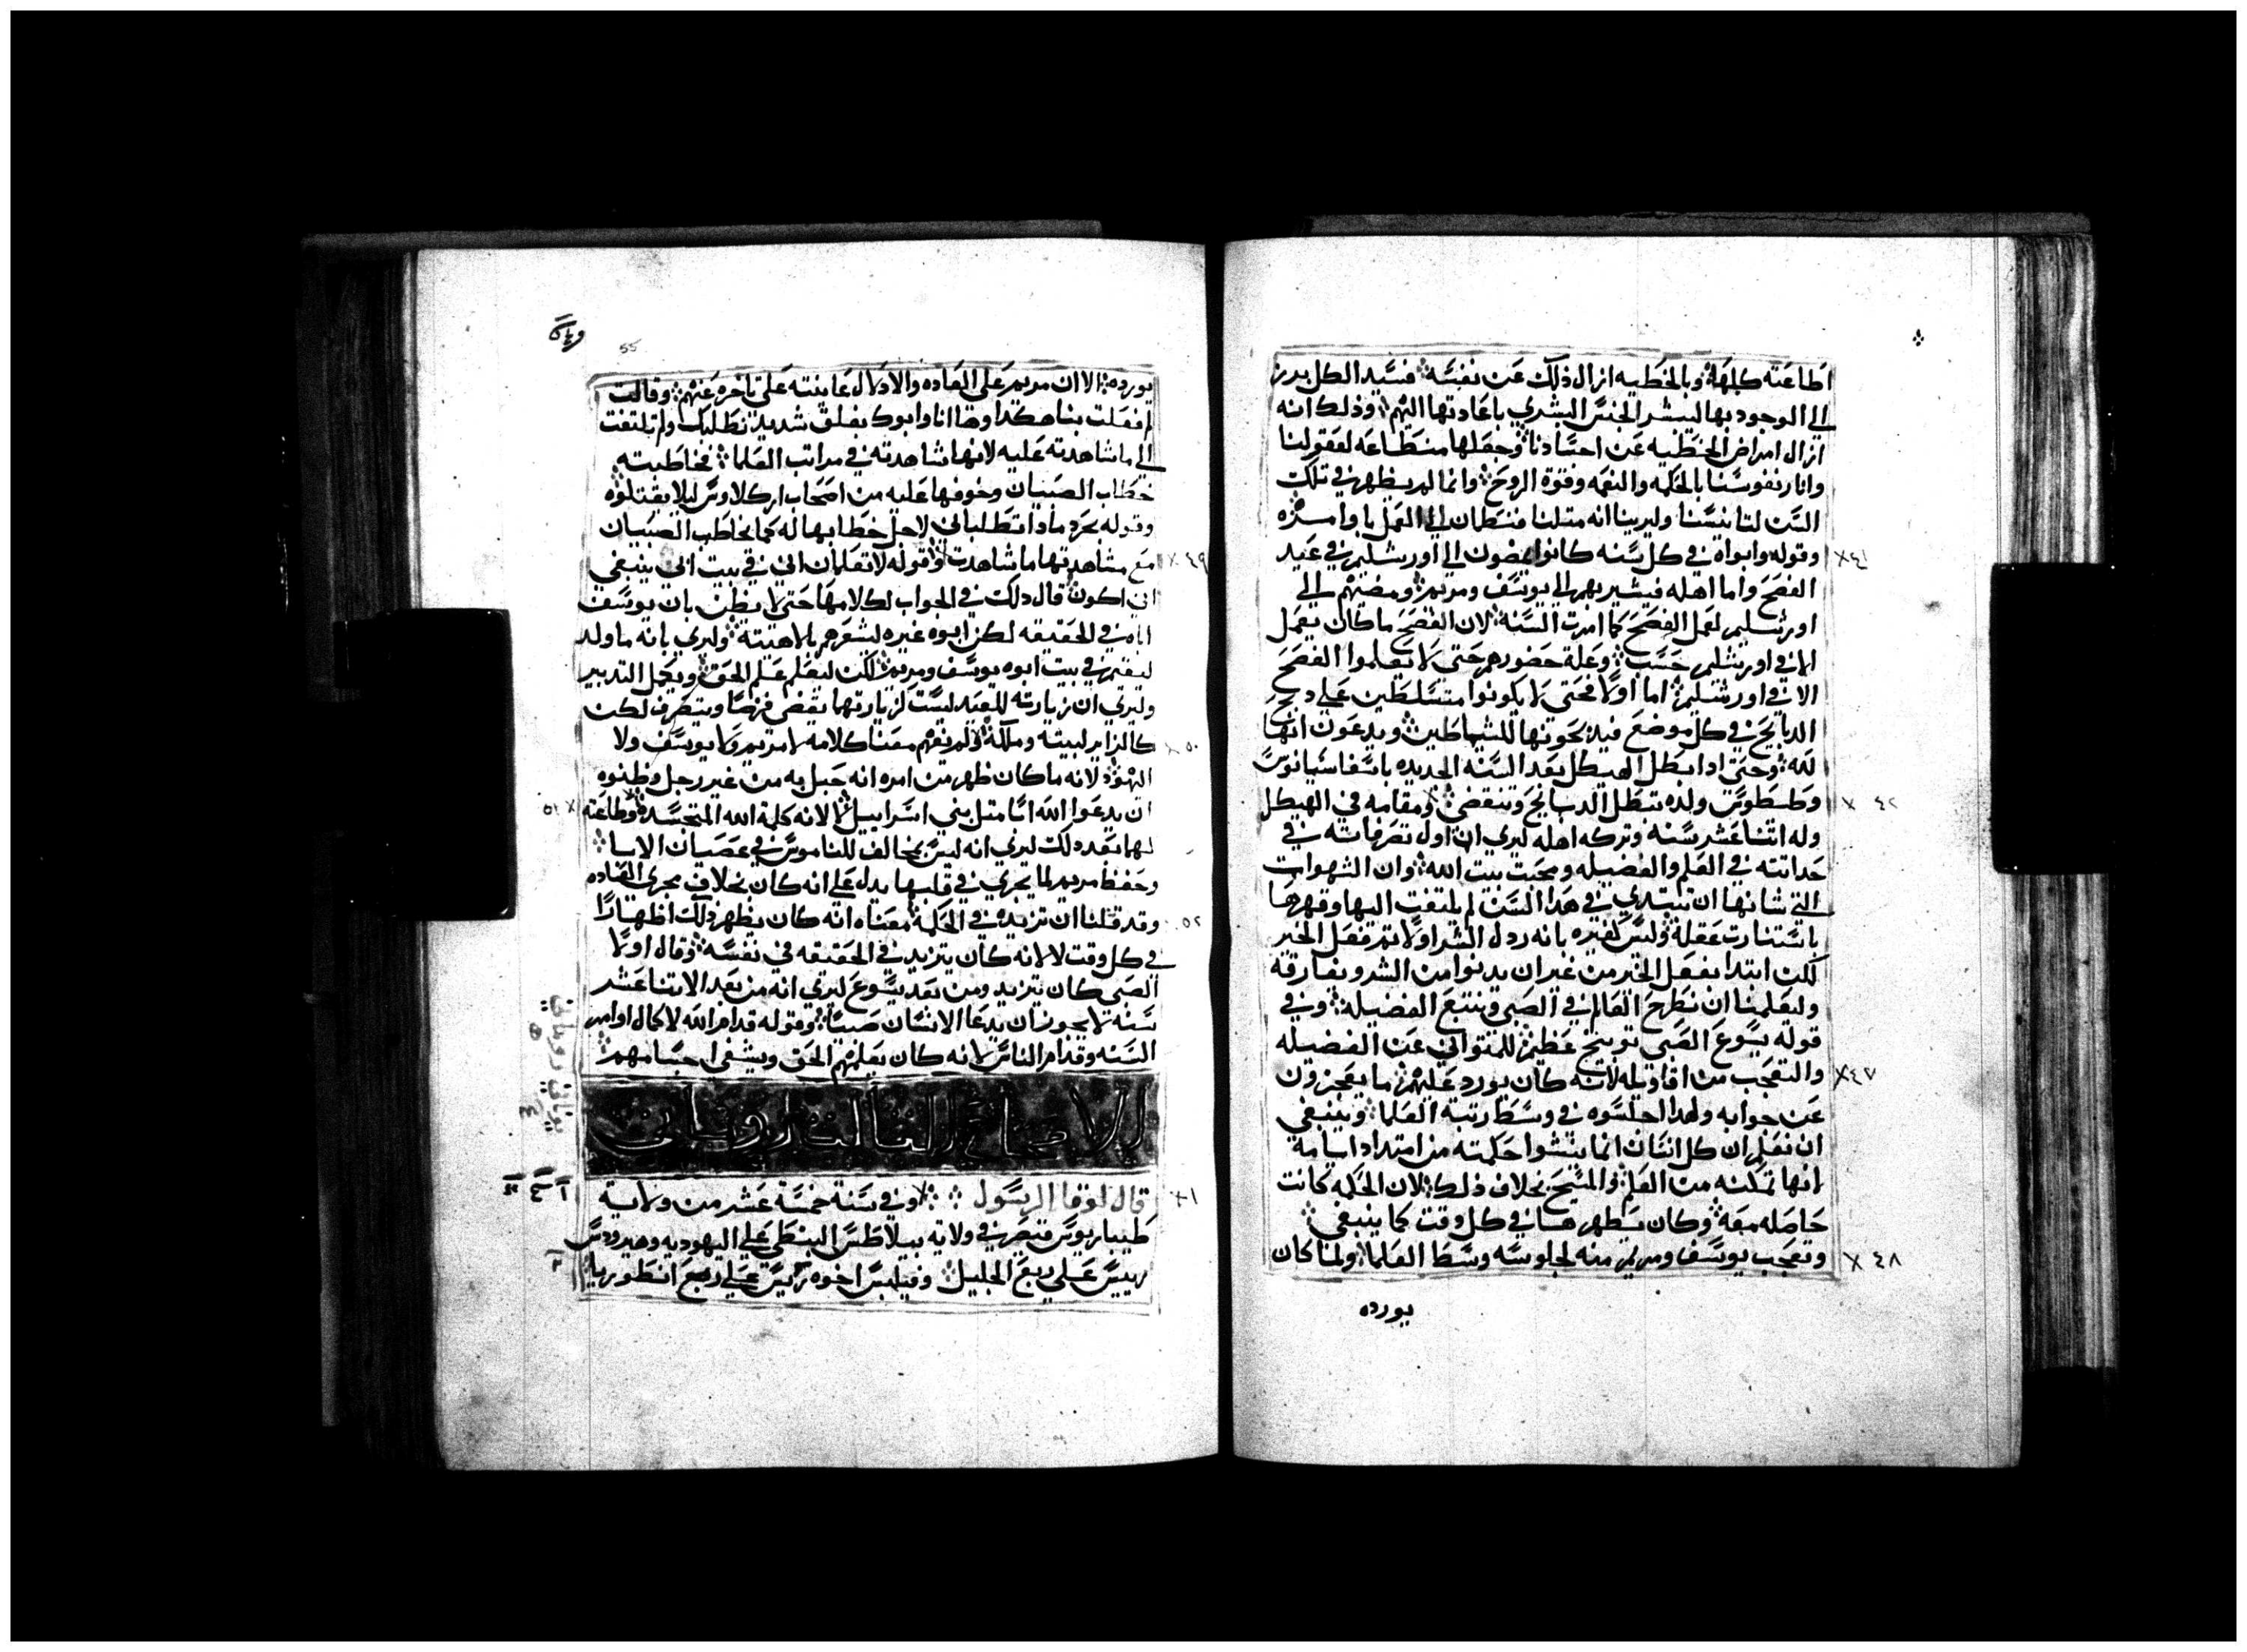 اطاعته كلها وبالخطيه ازال ذلك عن نفسه فسيد الكل بدر
الي الوجود بها ليبشر الجنس البشري باعادتها اليهم وذلك انه
ازال امراض الخطيه عن اجسادنا وجعلها منطاعه لعقولنا
وانار نفوسنا بالحكمه والنعمه وقوة الروح وانما لم يظهر في تلك
السن لتانيسنا وليرينا انه متلنا فننطاع الي العمل باوامره
وقوله وابواه في كل سنه كانوا يمضون الي اورشليم في عيد ٤١
الفصح واما اهله فيشير بهم الي يوسف ومريم ومضيهم الي
اورشليم لعمل الفصح كما امرت السنه لان الفصح ما كان يعمل
الا في اورشليم حسب وعلة حضورهم حتي لا يعملوا الفصح
الا في اورشليم اما اولا فحتي لا يكونوا متسلطين علي دبح
الدبايح في كل موضع فيدبحونها للشياطين ويدعون انها
لله وحتي ادا بطل الهيكل بعد السنه الجديده باسفاسيانوس
وطيطوس ولده تبطل الدبايح وتنقضي ومقامه في الهيكل ٤٢
وله اتنا عشر سنه وتركه اهله ليري ان اول تصرفاته في
حداتته في العلم والفضيله ومحبت بيت الله وان الشهوات
التي شانها ان تبتدي في هدا السن لم يلتفت اليها وقهرها
باستنارت عقله وليس كغيره بانه ردل الشر اولا تم فعل الخير
لكن ابتدا بفعل الخير من غير ان يدنوا من الشر ويفارقه
وليعلمنا ان نطرح العالم في الصبي ونتبع الفضيله وفي
قوله يسوع الصبي توبيخ عظيم للمتواني عن الفضيله
والتعجب من اقاويله لانه كان يورد عليهم ما يعجزون ٤٧
عن جوابه ولهدا اجلسوه في وسط رتبة العلما وينبغي
ان نعلم ان كل انسان انما ينشوا حكمته من امتداد ايامه
لانها تمكنه من العلم والمسيح بخلاف ذلك لان الحكمه كانت
حاصله معه وكان يظهرها في كل وقت كما ينبغي
وتعجب يوسف ومريم منه لجلوسه وسط العلما ولما كان ٤٨
يورده
55
يورده الا ان مريم علي العاده والادلال عاتبته علي تاخره عنهم وقالت
لم فعلت بنا هكدا وها انا وابوك بقلق شديد نطلبك ولم تلتفت
الي ما شاهدته عليه لانها شاهدته في مراتب العلما فخاطبته
خطاب الصبيان وخوفها عليه من اصحاب اركلاوس ليلا يقتلوه
وقوله بحرد مادا تطلباني لاجل خطابها له كما يخاطب الصبيان
مع مشاهدتها ما شاهدت وقوله لا تعلمان اني في بيت ابي ينبغي ٤٩
ان اكون قال دلك في الجواب لكلامها حتي لا يظن بان يوسف
اباه في الحقيقه لكن ابوه غيره ليشعرهم بالاهيته وليري بانه ما ولد
ليقيم في بيت ابوه يوسف ومريم لكن ليعلم علم الحق ويكمل التدبير
وليري ان زيارته للعيد ليست كزيارتهما يقضي فرضا وينصرف لكن
كالزاير لبيته وملكه ولم يفهم معنا كلامه لا مريم ولا يوسف ولا ٥٠
اليهود لانه ما كان ظهر من امره انه حبل به من غير رجل وظنوه
ان يدعوا الله ابا متل بني اسراييل لا لانه كلمة الله المتجسده وطاعته ٥١
لهما بعد دلك ليري انه ليس بمخالف للناموس في عصيان الابا
وحفظ مريم لما يجري في قلبها يدل علي انه كان بخلاف مجري العاده
وقد قلنا ان تزيده في الحكمه معناه انه كان يظهر دلك اظهارا ٥٢
في كل وقت لا لانه كان يتزيد في الحقيقه في نفسه وقال اولا
الصبي كان يتزيد ومن بعد يسوع ليري انه من بعد الاتنا عشر
سنه لا يجوز ان يدعا الانسان صبيا وقوله قدام الله لاكمال اوامر
السنه وقدام الناس لانه كان يعلمهم الحق ويشفي اجسامهم
الاصحاح التالت
قال لوقا الرسول وفي سنة خمسة عشر من ولاية ١
طيباريوس قيصر في ولاية بيلاطس البنطي علي اليهوديه وهيرودس
رييس علي ربع الجليل وفيلبس اخوه رييس علي ربع انطوريا